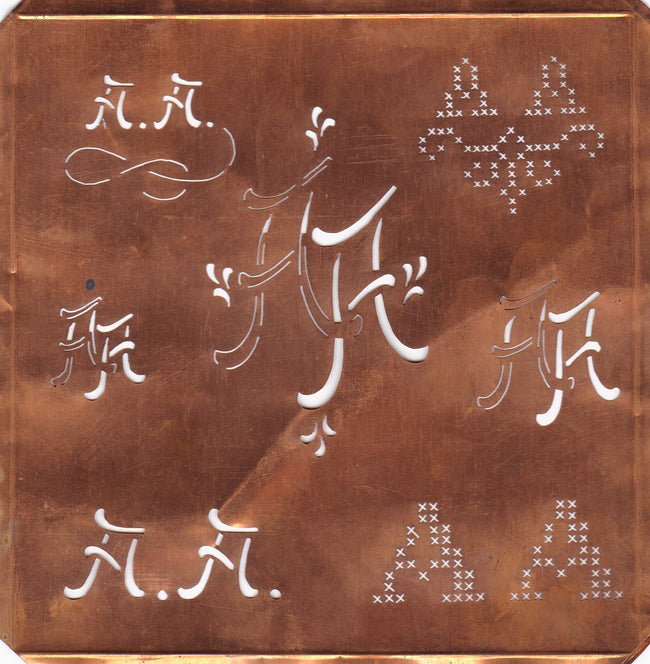 A. A.
A A
AA
AA
AA
A. A.
A A